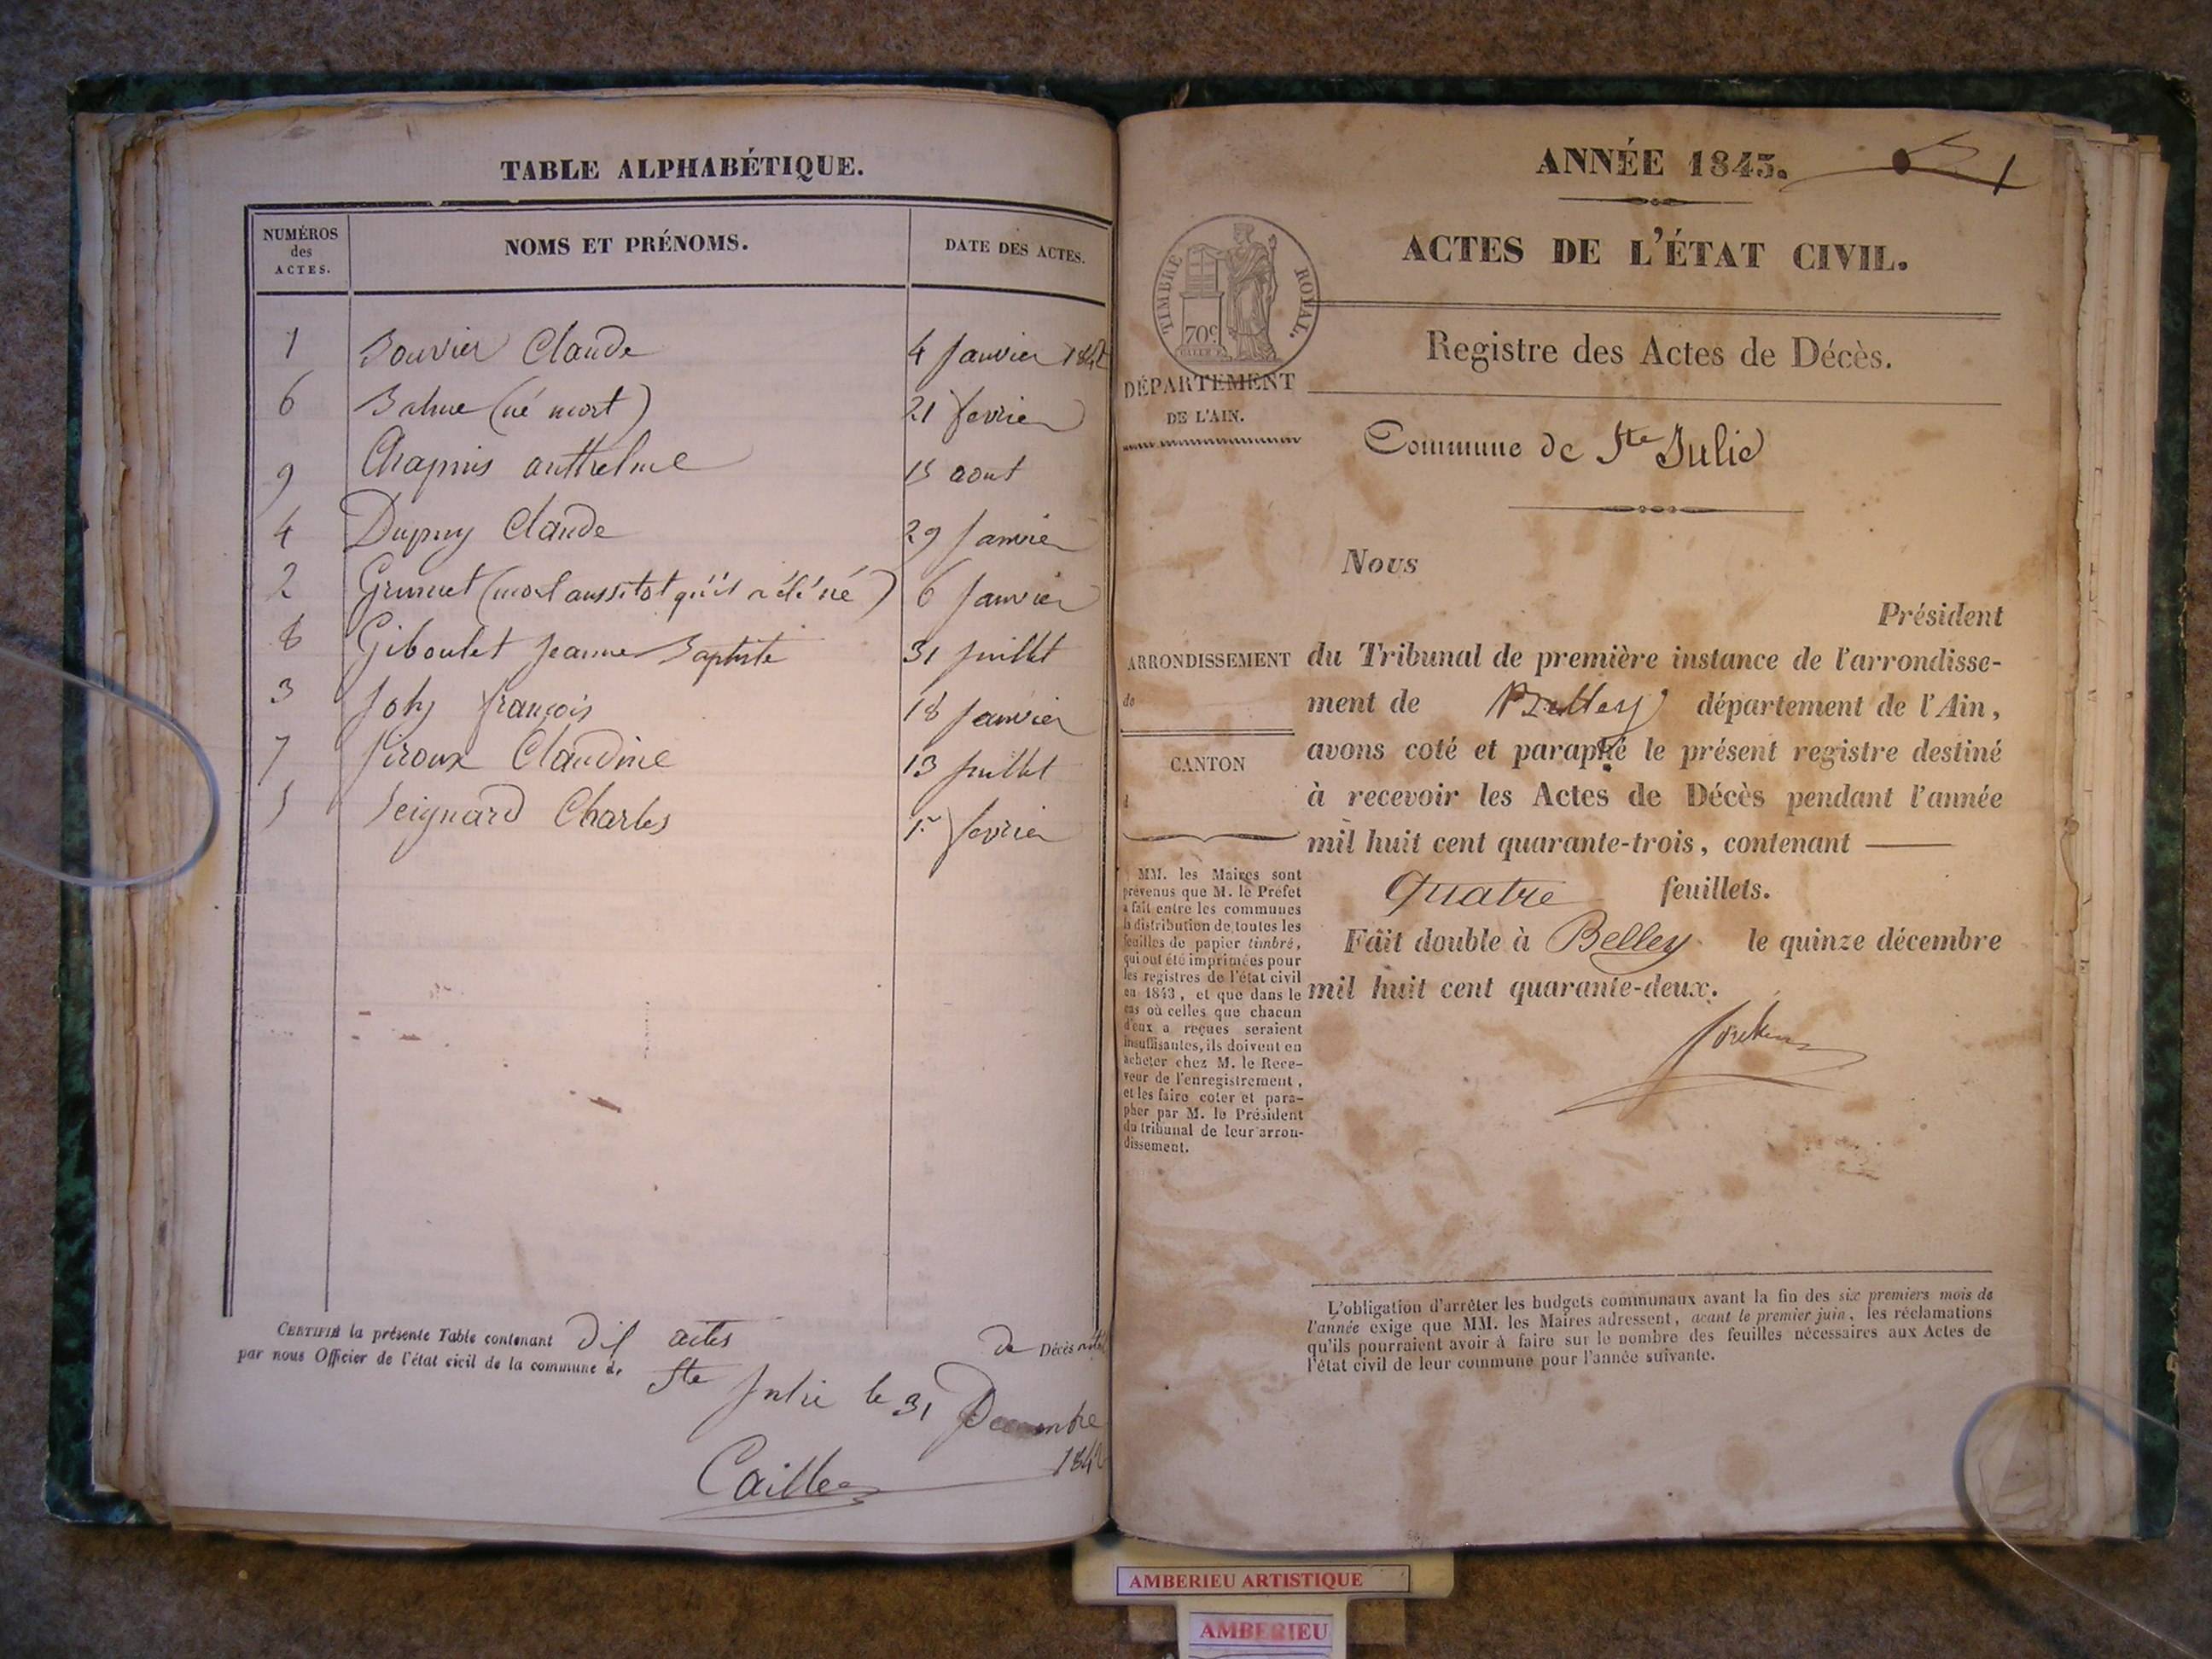 TABLE ALPHABÉTIQUE.
NUMÉROS des ACTES. NOMS ET PRÉNOMS. DATE DES ACTES.
1 Bouvier Claude 4 janvier 1842
6 (né mort) 21 fevrier
9 Chapuis anthelme 15 aout
4 Dupuy Claude 29 janvier
2 (mort aussitot qu'il a été né) 6 janvier
8 Giboulet Jeanne Baptiste 31 juillet
3 Joly françois 18 janvier
7 Claudine 13 juillet
5 Seignard Charles 1er fevrier
CERTIFIÉ la présente Table contenant actes de Décès
par nous Officier de l'état civil de la commune de Ste Julie le 31 Decembre
1842
ANNÉE 1843.
ACTES DE L'ÉTAT CIVIL.
TIMBRE ROYAL.
70c
Registre des Actes de Décès.
DÉPARTEMENT
DE L'AIN.
Commune de Ste Julie
Nous
Président
ARRONDISSEMENT
de
CANTON
d
du Tribunal de première instance de l'arrondisse-
ment de Belley département de l'Ain,
avons coté et paraphé le présent registre destiné
à recevoir les Actes de Décès pendant l'année
mil huit cent quarante-trois, contenant
Quatre feuillets.
Fait double à Belley le quinze décembre
mil huit cent quarante-deux.
MM. les Maires sont
prévenus que M. le Préfet
a fait entre les communes
la distribution de toutes les
feuilles de papier timbré,
qui ont été imprimées pour
les registres de l'état civil
en 1843, et que dans le
cas où celles que chacun
d'eux a reçues seraient
insuffisantes, ils doivent en
acheter chez M. le Rece-
veur de l'enregistrement,
et les faire coter et para-
pher par M. le Président
du tribunal de leur arron-
dissement.
L'obligation d'arrêter les budgets communaux avant la fin des six premiers mois de
l'année exige que MM. les Maires adressent, avant le premier juin, les réclamations
qu'ils pourraient avoir à faire sur le nombre des feuilles nécessaires aux Actes de
l'état civil de leur commune pour l'année suivante.
AMBERIEU ARTISTIQUE
AMBERIEU